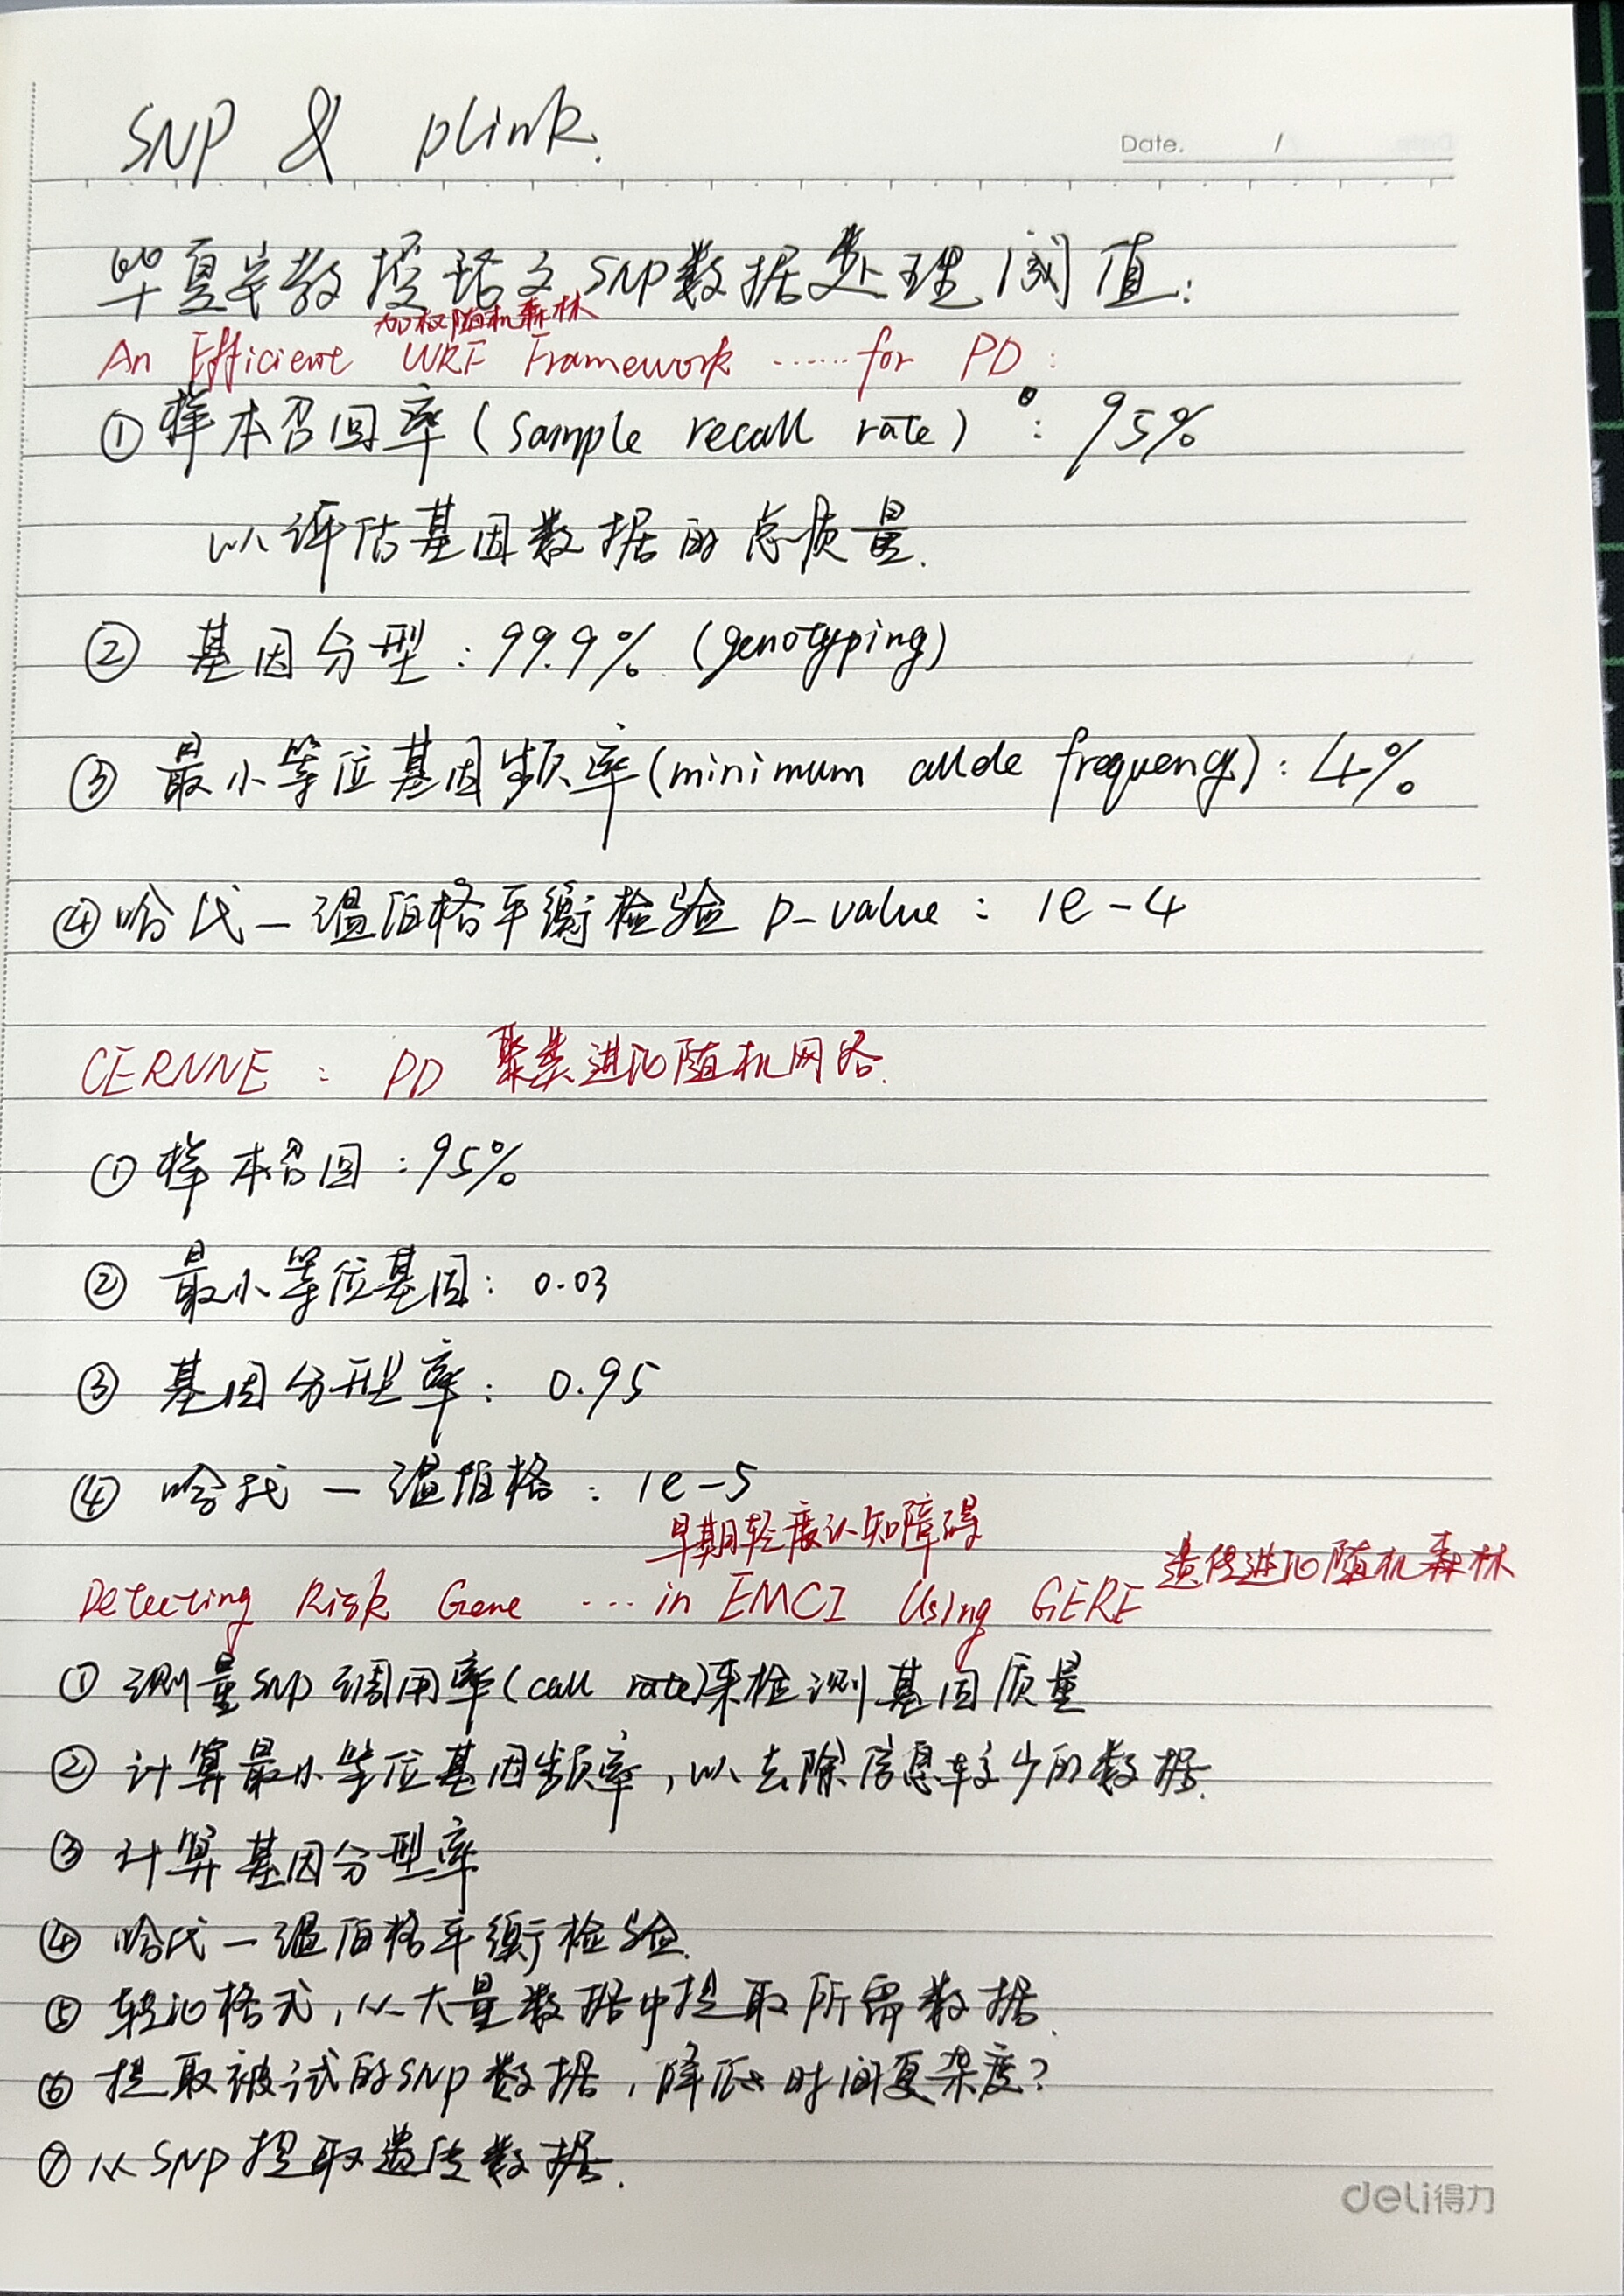 SNP & plink.
Date. /
毕夏安教授论文SNP数据处理阈值:
加权随机森林
An Efficient WRF Framework ...... for PD:
①样本召回率(sample recall rate): 95%
以评估基因数据的总质量.
② 基因分型: 99.9% (genotyping)
③ 最小等位基因频率(minimum allele frequency): 4%
④哈代-温伯格平衡检验 p-value: 1e-4
CERNNE: PD 聚类进化随机网络.
①样本召回: 95%
② 最小等位基因: 0.03
③ 基因分型率: 0.95
④ 哈代-温伯格: 1e-5
早期轻度认知障碍
遗传进化随机森林
Detecting Risk Gene ... in EMCI Using GERF
① 测量SNP调用率(call rate)来检测基因质量
② 计算最小等位基因频率,以去除信息较少的数据.
③ 计算基因分型率
④ 哈代-温伯格平衡检验.
⑤ 转化格式,从大量数据中提取所需数据.
⑥ 提取被试的SNP数据,降低时间复杂度?
⑦ 从SNP提取遗传数据.
deli得力